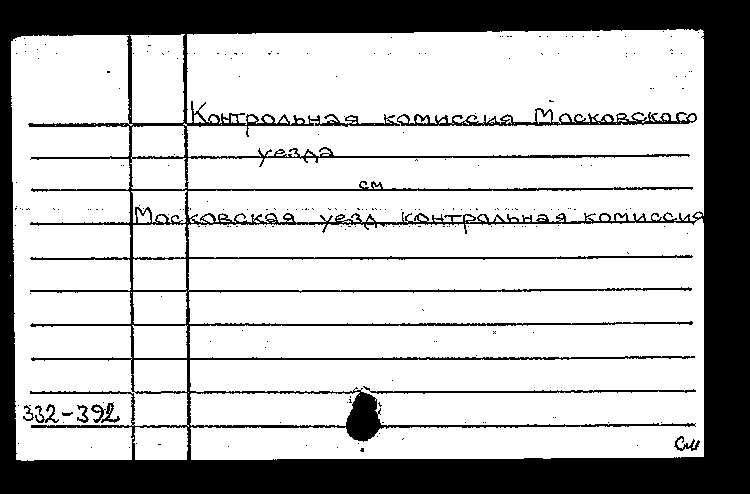 Контрольная комиссия Московского
уезда
см
Московская уезд контрольная комиссия
332-392
См